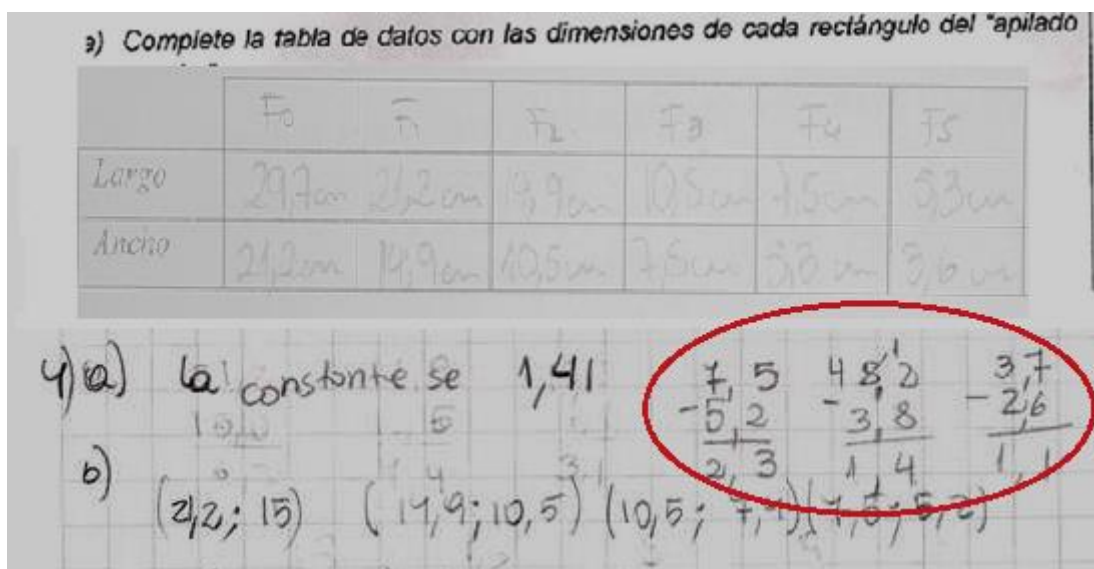 a) Complete la tabla de datos con las dimensiones de cada rectángulo del "apilado
F0 F1 F2 F3 F4 F5
Largo 29,7cm 21,2cm 14,9cm 10,5cm 7,5cm 5,3cm
Ancho 21,2cm 14,9cm 10,5cm 7,5cm 5,3cm 3,6cm
4) a) la constante se 1,41
7,5 - 5,2 2,3
5,2 - 3,8 1,4
3,7 - 2,6 1,1
b) (21,2; 15) (14,9; 10,5) (10,5; 7,4) (7,5; 5,2)